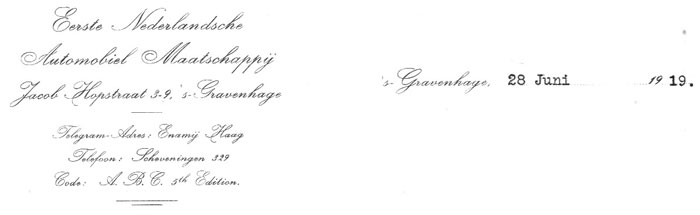 Eerste Nederlandsche
Automobiel Maatschappij
Jacob Hopstraat 3-9, 's-Gravenhage
's-Gravenhage, 28 Juni 19 19.
Telegram-Adres: Enamij Haag
Telefoon: Scheveningen 329
Code: A. B. C. 5th Edition.